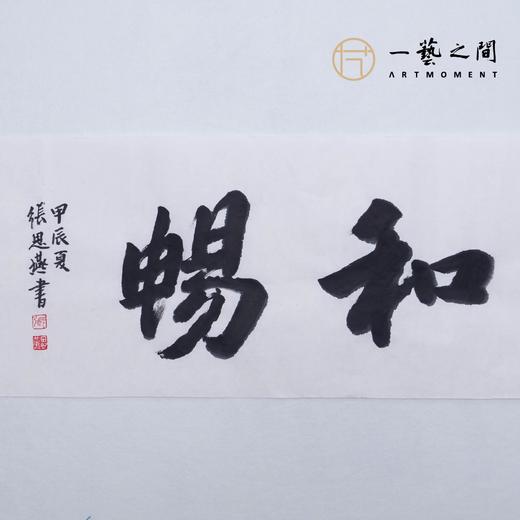 一藝之間
ARTMOMENT
和暢
甲辰夏
張思燕書